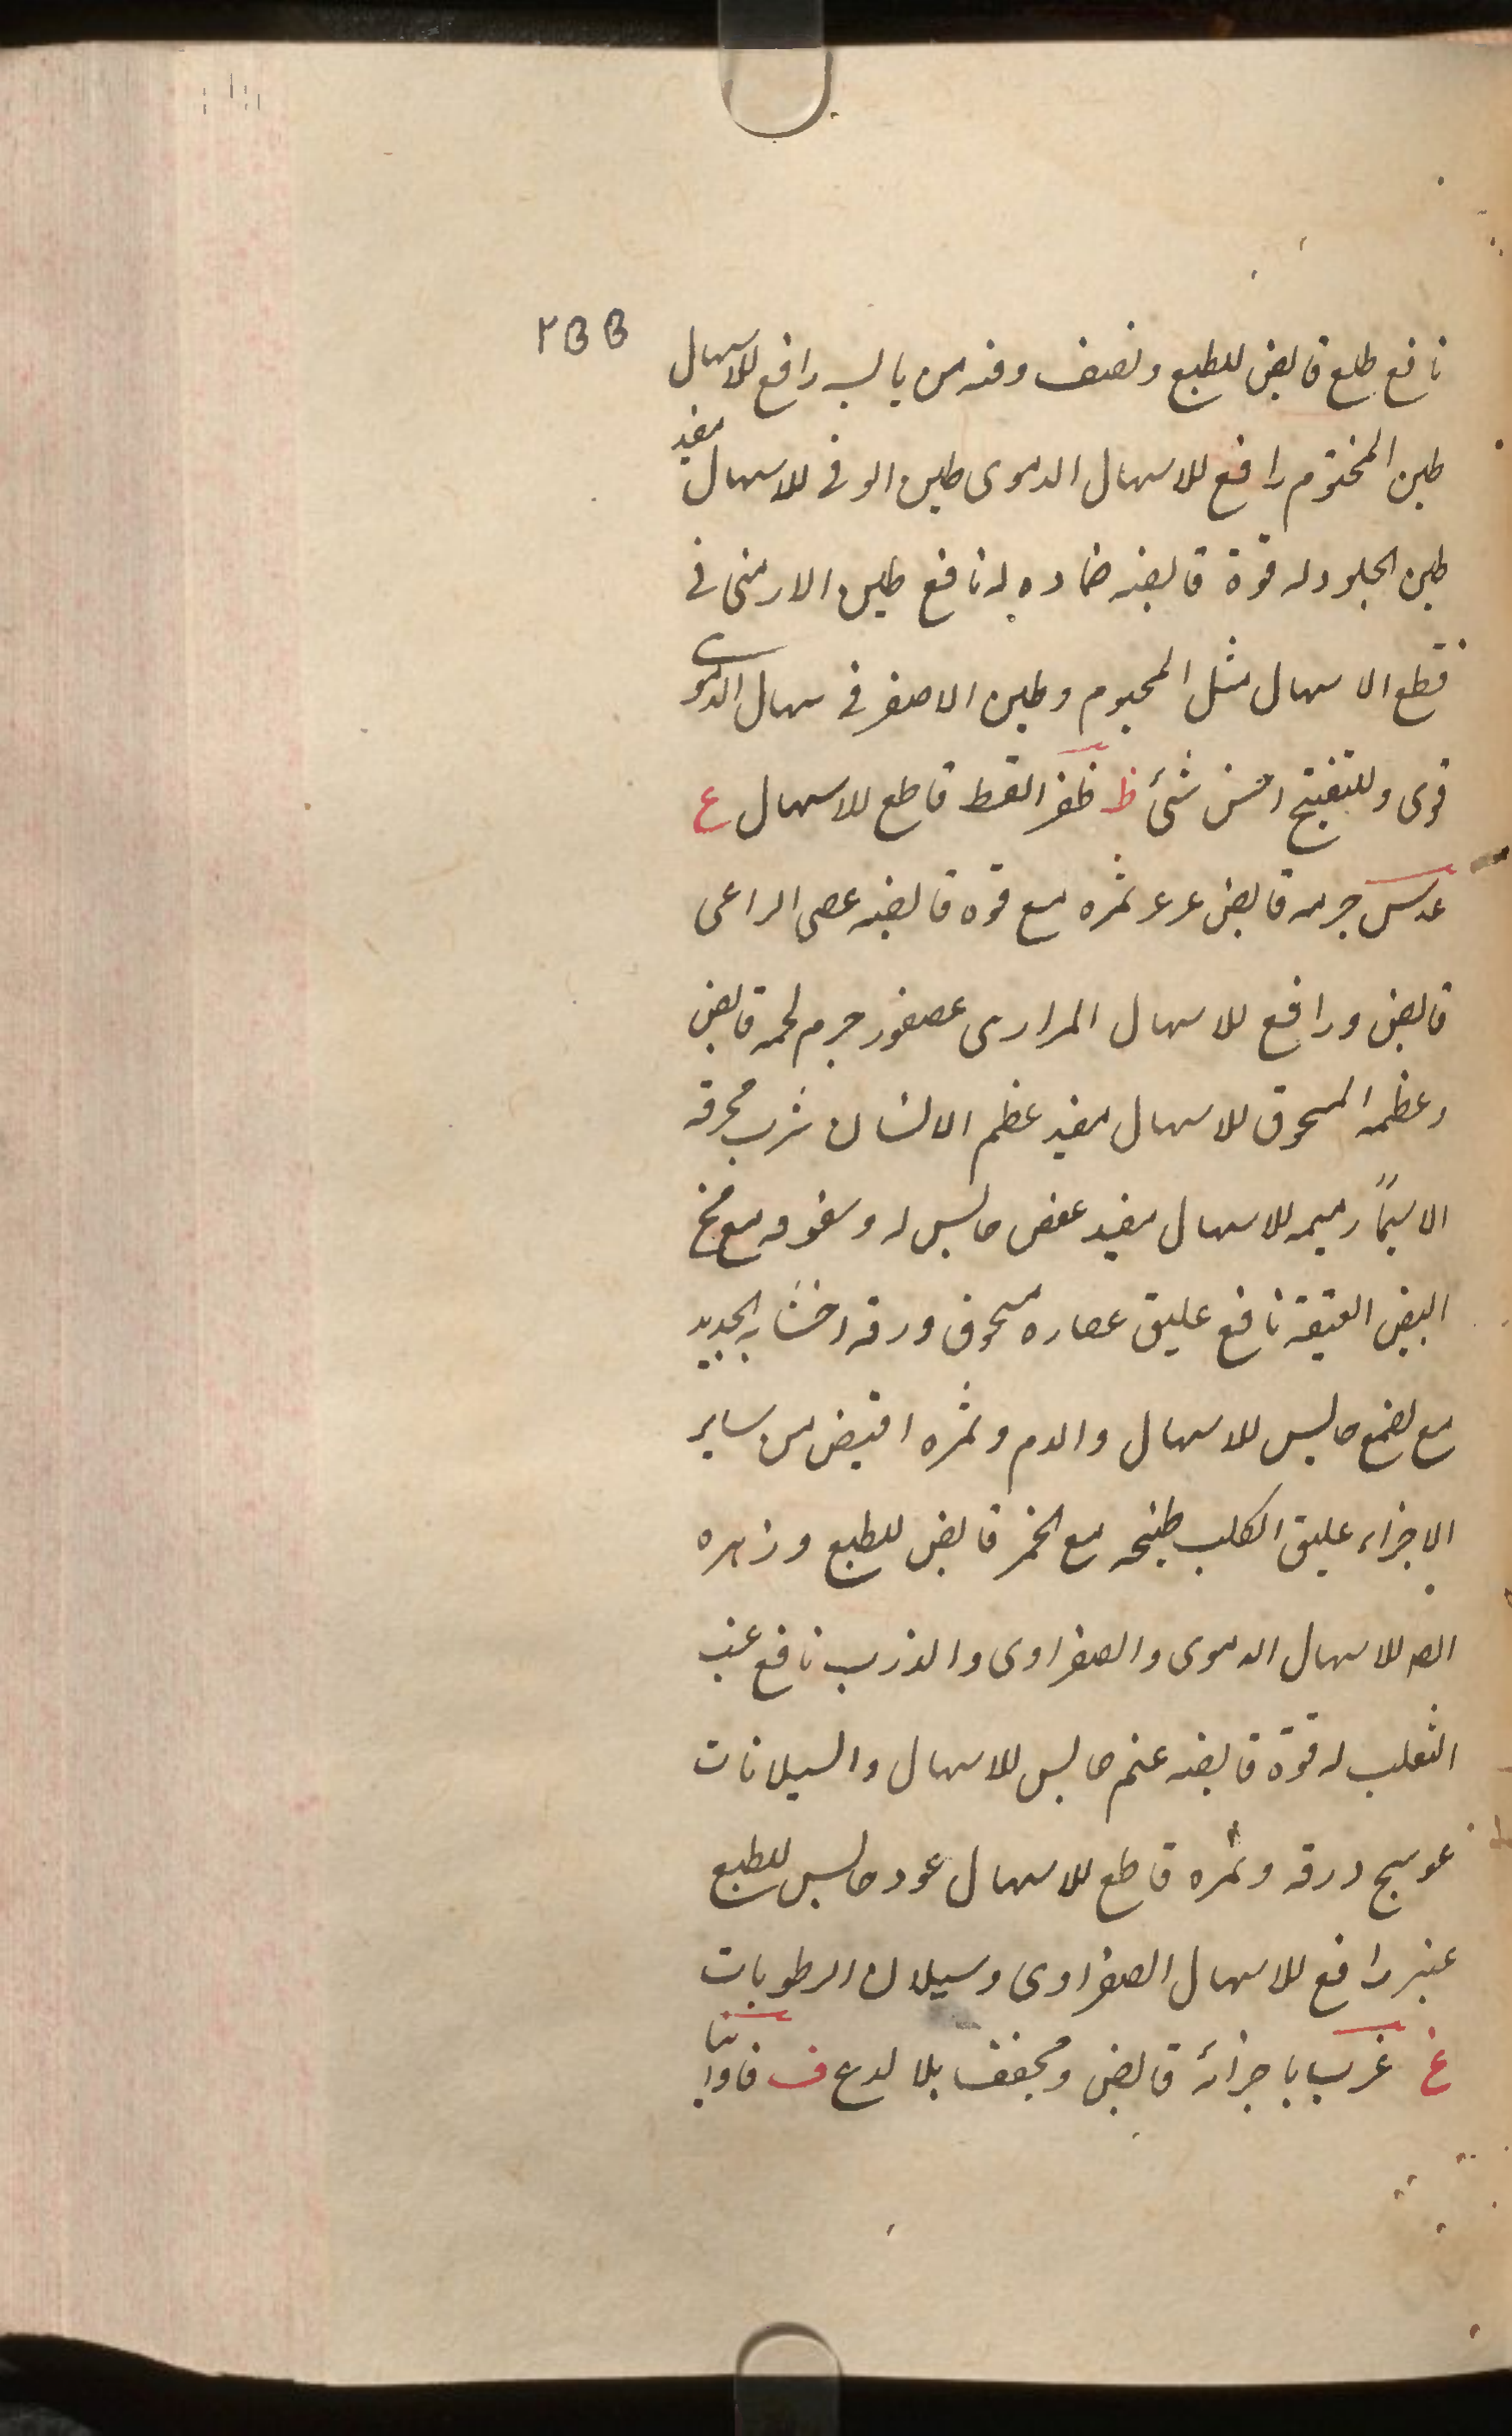 ٢٥٥
نافع طلع قابض للطبع ونصف وقنه من يابسه رافع للاسهال
طين المختوم رافع للاسهال الدموى طين الوفى للاسهال مفيد
طين الجلود له قوة قابضه ضماده له نافع طين الارمنى فى
قطع الاسهال مثل المختوم وطين الاصفر فى سهال الدموى
قوى وللتفتيح احسن شئ ظ ظفر القط قاطع للاسهال ع
عدس جرمه قابض عرعر ثمره مع قوه قابضه عصى الراعى
قابض ورافع للاسهال المرارى عصفور جرم لحمه قابض
وعظمه المسحوق للاسهال مفيد عظم الانسان شرب محرقه
الاسيماً رميمه للاسهال مفيد عفص حابس له وسفوفه مع مخ
البيض العتيقة نافع عليق عصاره مسحوق ورقه اخشابه الجديد
مع لصمغ حابس للاسهال والدم وثمره اقبض من ساير
الاجزاء عليق الكلب طبيخه مع الخمر قابض للطبع وزهره
الضه للاسهال الدموى والصفراوى والذرب نافع عنب
الثعلب له قوة قابضه عنم حابس للاسهال والسيلانات
عوسج ورقه وثمره قاطع للاسهال عود حابس للطبع
عنبر رافع للاسهال الصفراوى وسيلان الرطوبات
غ غرب باجزائه قابض ومجفف بلا لدع ف فاوانيا